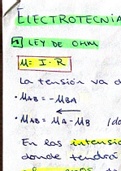 ELECTROTECNIA
LEY DE OHM
U = I · R
La tensión va d
• UAB = -UBA
• UAB = UA - UB (do
En las intensio
donde tendrá